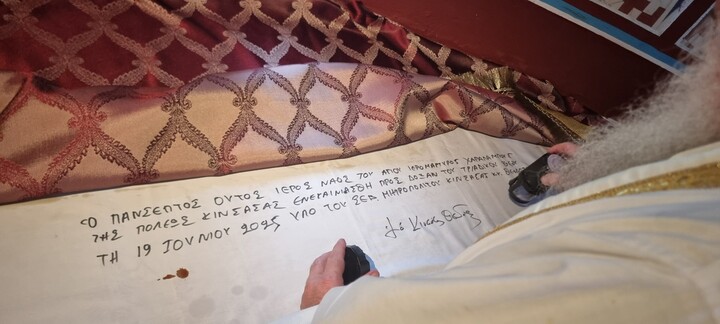 Ὁ ΠΑΝΣΕΠΤΟΣ ΟΥΤΟΣ ΙΕΡΟΣ ΝΑΟΣ ΤΟΥ ΑΓΙΟΥ ΙΕΡΟΜΑΡΤΥΡΟΣ ΧΑΡΑΛΑΜΠΟΥΣ
ΤΗΣ ΠΟΛΕΩΣ ΚΙΝΣΑΣΑΣ ΕΝΕΚΑΙΝΙΑΣΘΗ ΠΡΟΣ ΔΟΞΑΝ ΤΟΥ ΤΡΙΑΔΙΚΟΥ ΘΕΟΥ
ΤΗ 19 ΙΟΥΝΙΟΥ 2025 ΥΠΟ ΤΟΥ ΣΕΒ. ΜΗΤΡΟΠΟΛΙΤΟΥ ΚΙΝΣΑΣΑΣ κκ.